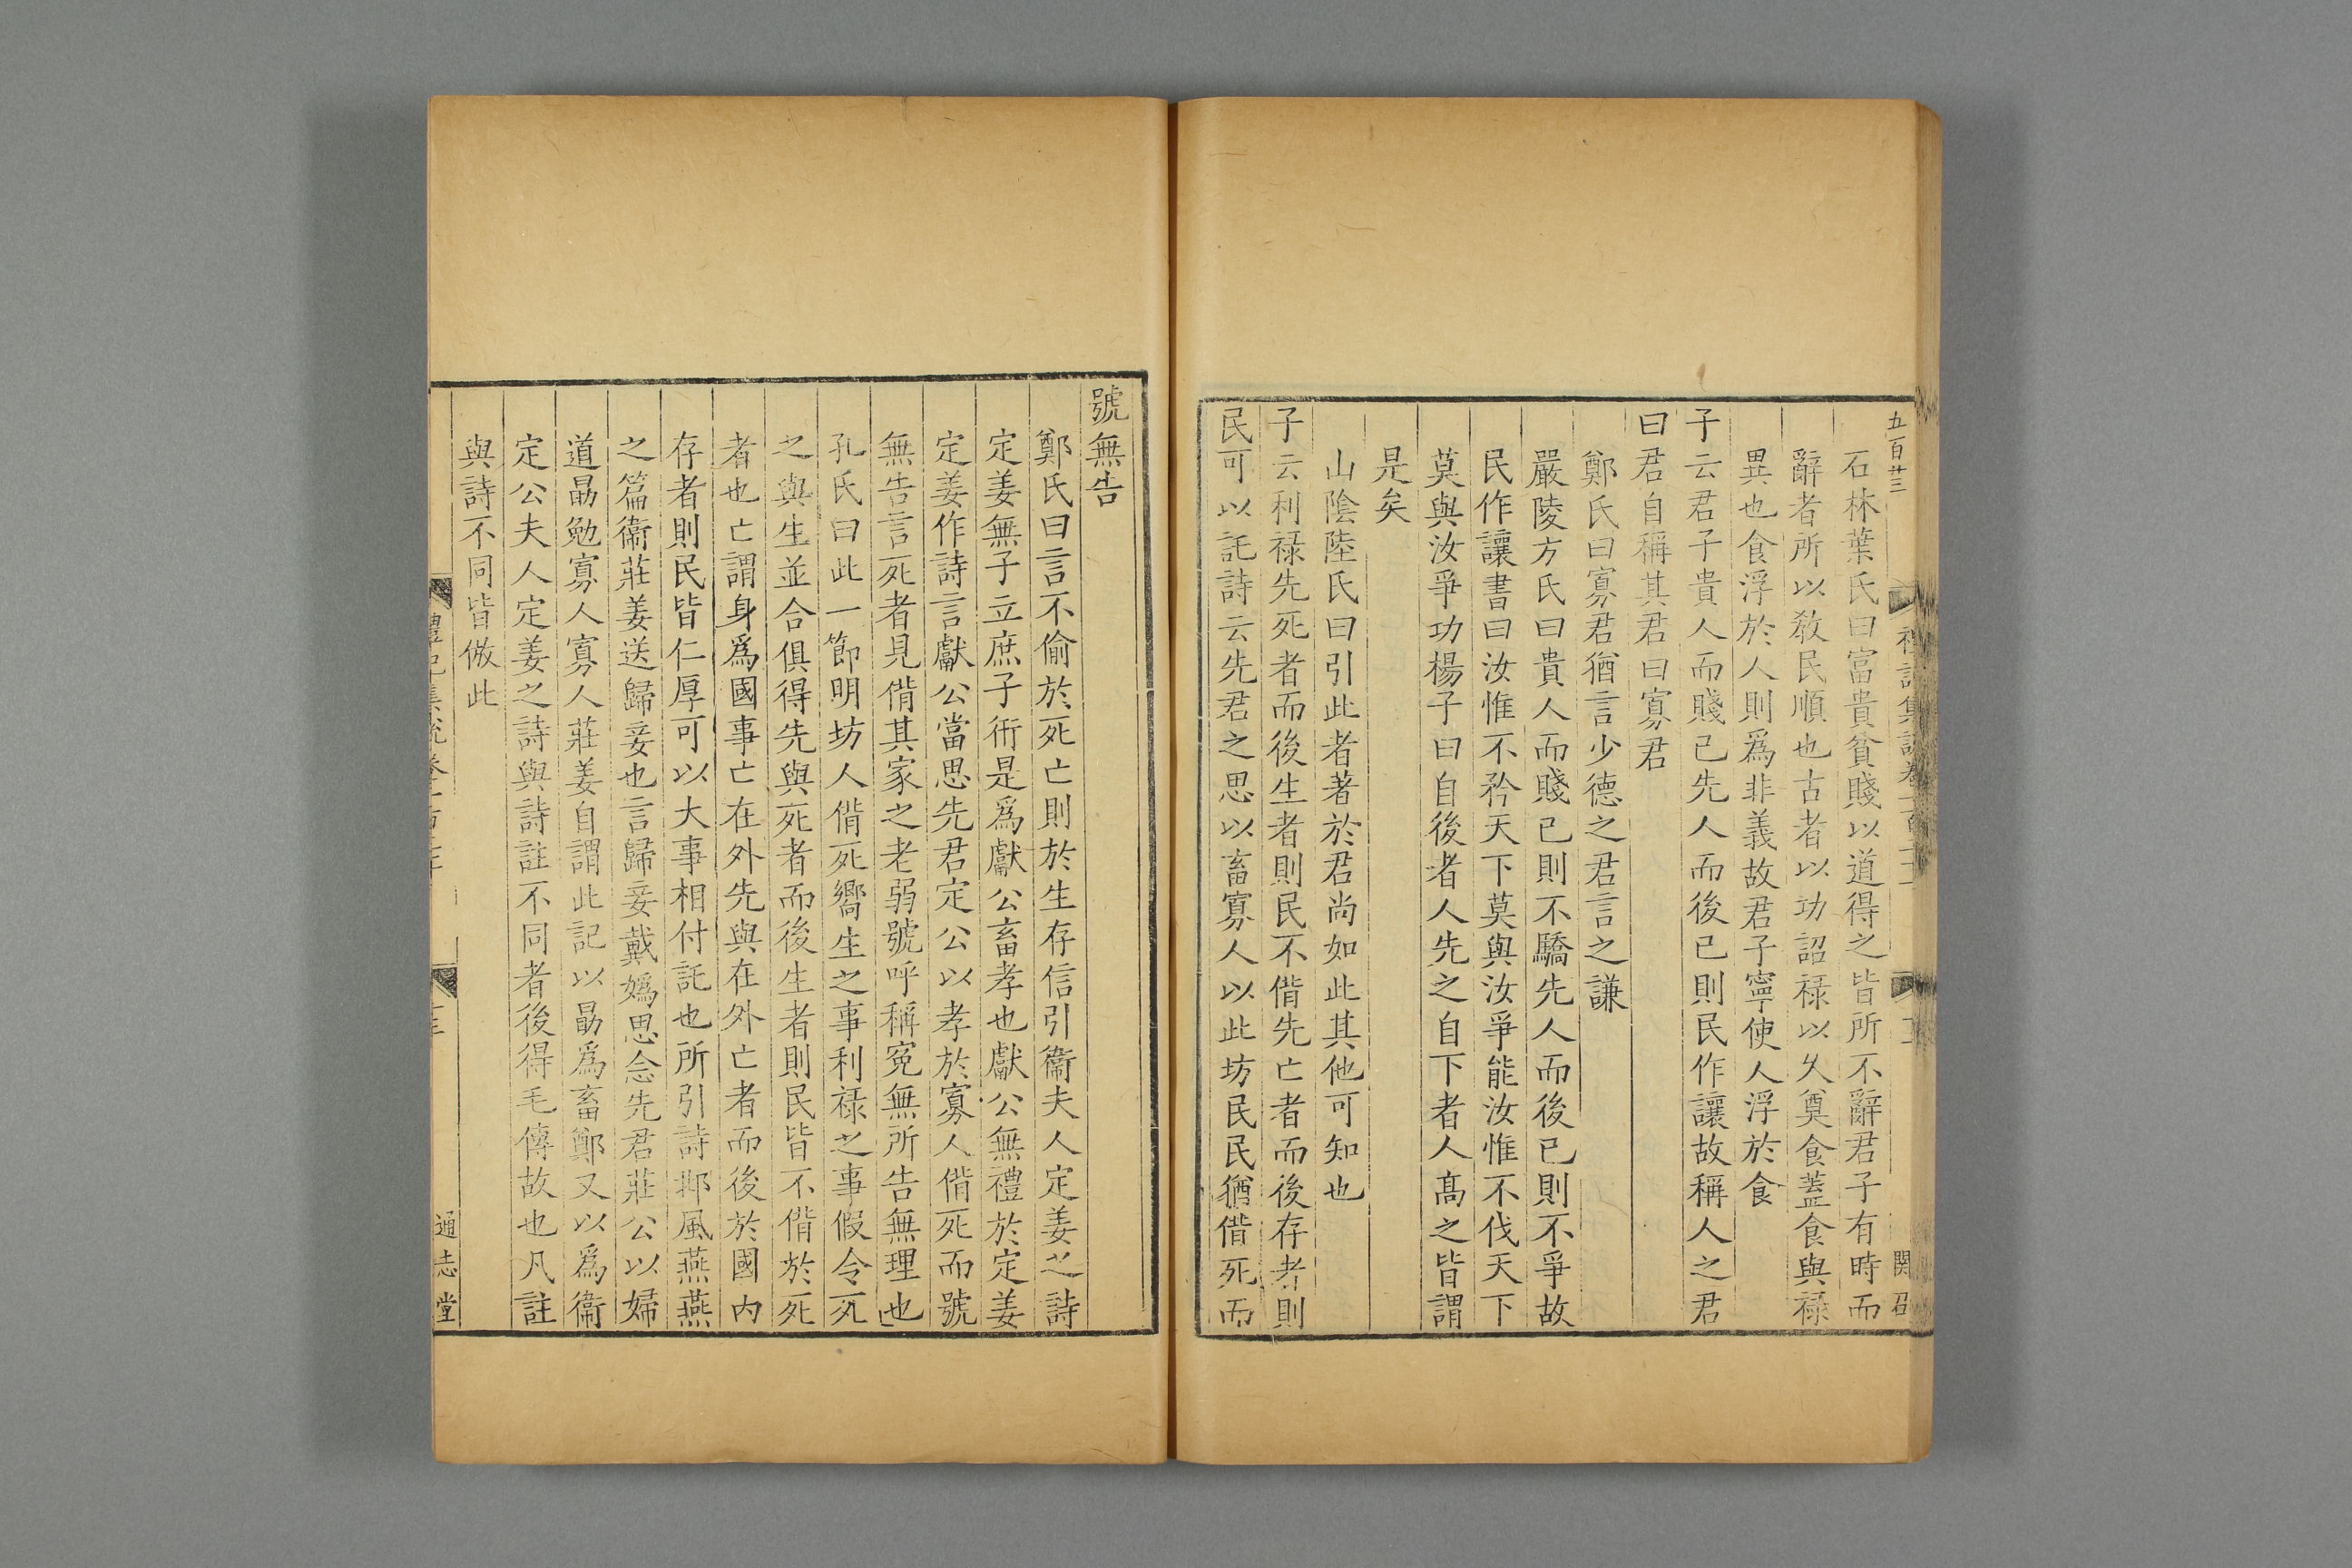 五百廿三
石林葉氏曰富貴貧賤以道得之皆所不辭君子有時而
辭者所以教民順也古者以功詔祿以久奠食蓋食與祿
異也食浮於人則爲非義故君子寧使人浮於食
子云君子貴人而賤己先人而後己則民作讓故稱人之君
曰君自稱其君曰寡君
鄭氏曰寡君猶言少德之君言之謙
嚴陵方氏曰貴人而賤己則不驕先人而後己則不爭故
民作讓書曰汝惟不矜天下莫與汝爭能汝惟不伐天下
莫與汝爭功楊子曰自後者人先之自下者人髙之皆謂
是矣
山陰陸氏曰引此者著於君尚如此其他可知也
子云利祿先死者而後生者則民不偝先亡者而後存者則
民可以託詩云先君之思以畜寡人以此坊民民猶偝死而
號無告
鄭氏曰言不偷於死亡則於生存信引衞夫人定姜之詩
定姜無子立庶子衎是爲獻公畜孝也獻公無禮於定姜
定姜作詩言獻公當思先君定公以孝於寡人偝死而號
無告言死者見偝其家之老弱號呼稱寃無所告無理也
孔氏曰此一節明坊人偝死嚮生之事利祿之事假令死
之與生並合俱得先與死者而後生者則民皆不偝於死
者也亡謂身爲國事亡在外先與在外亡者而後於國內
存者則民皆仁厚可以大事相付託也所引詩邶風燕燕
之篇衞莊姜送歸妾也言歸妾戴嬀思念先君莊公以婦
道勗勉寡人寡人莊姜自謂此記以勗爲畜鄭又以爲衞
定公夫人定姜之詩與詩註不同者後得毛傳故也凡註
與詩不同皆倣此
通志堂